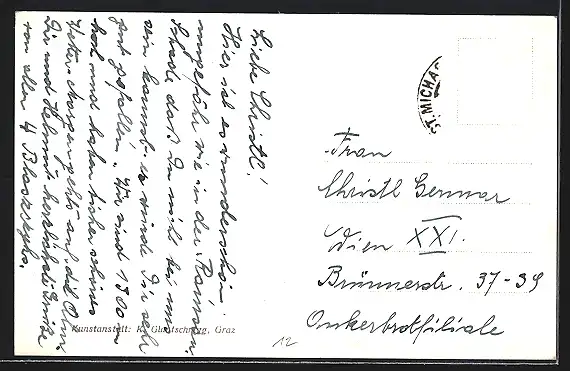 Liebe Christl!
Hier ist es wunderschön
ungefähr wie in der Ramsau.
Schade, daß Du nicht bei uns
sein kannst. es würde Dir sehr
gut gefallen. Wir sind 1300 m
hoch und haben bisher schönes
Wetter. Morgen geht's auf die Alm.
Dir und Helmut herzlichste Grüße
von allen 4
ST. MICHA
Frau
Christl Germar
Wien XXI.
Brünnerstr. 37-39
Ankerbrotfiliale
Kunstanstalt: K. Gluntschnigg, Graz
12